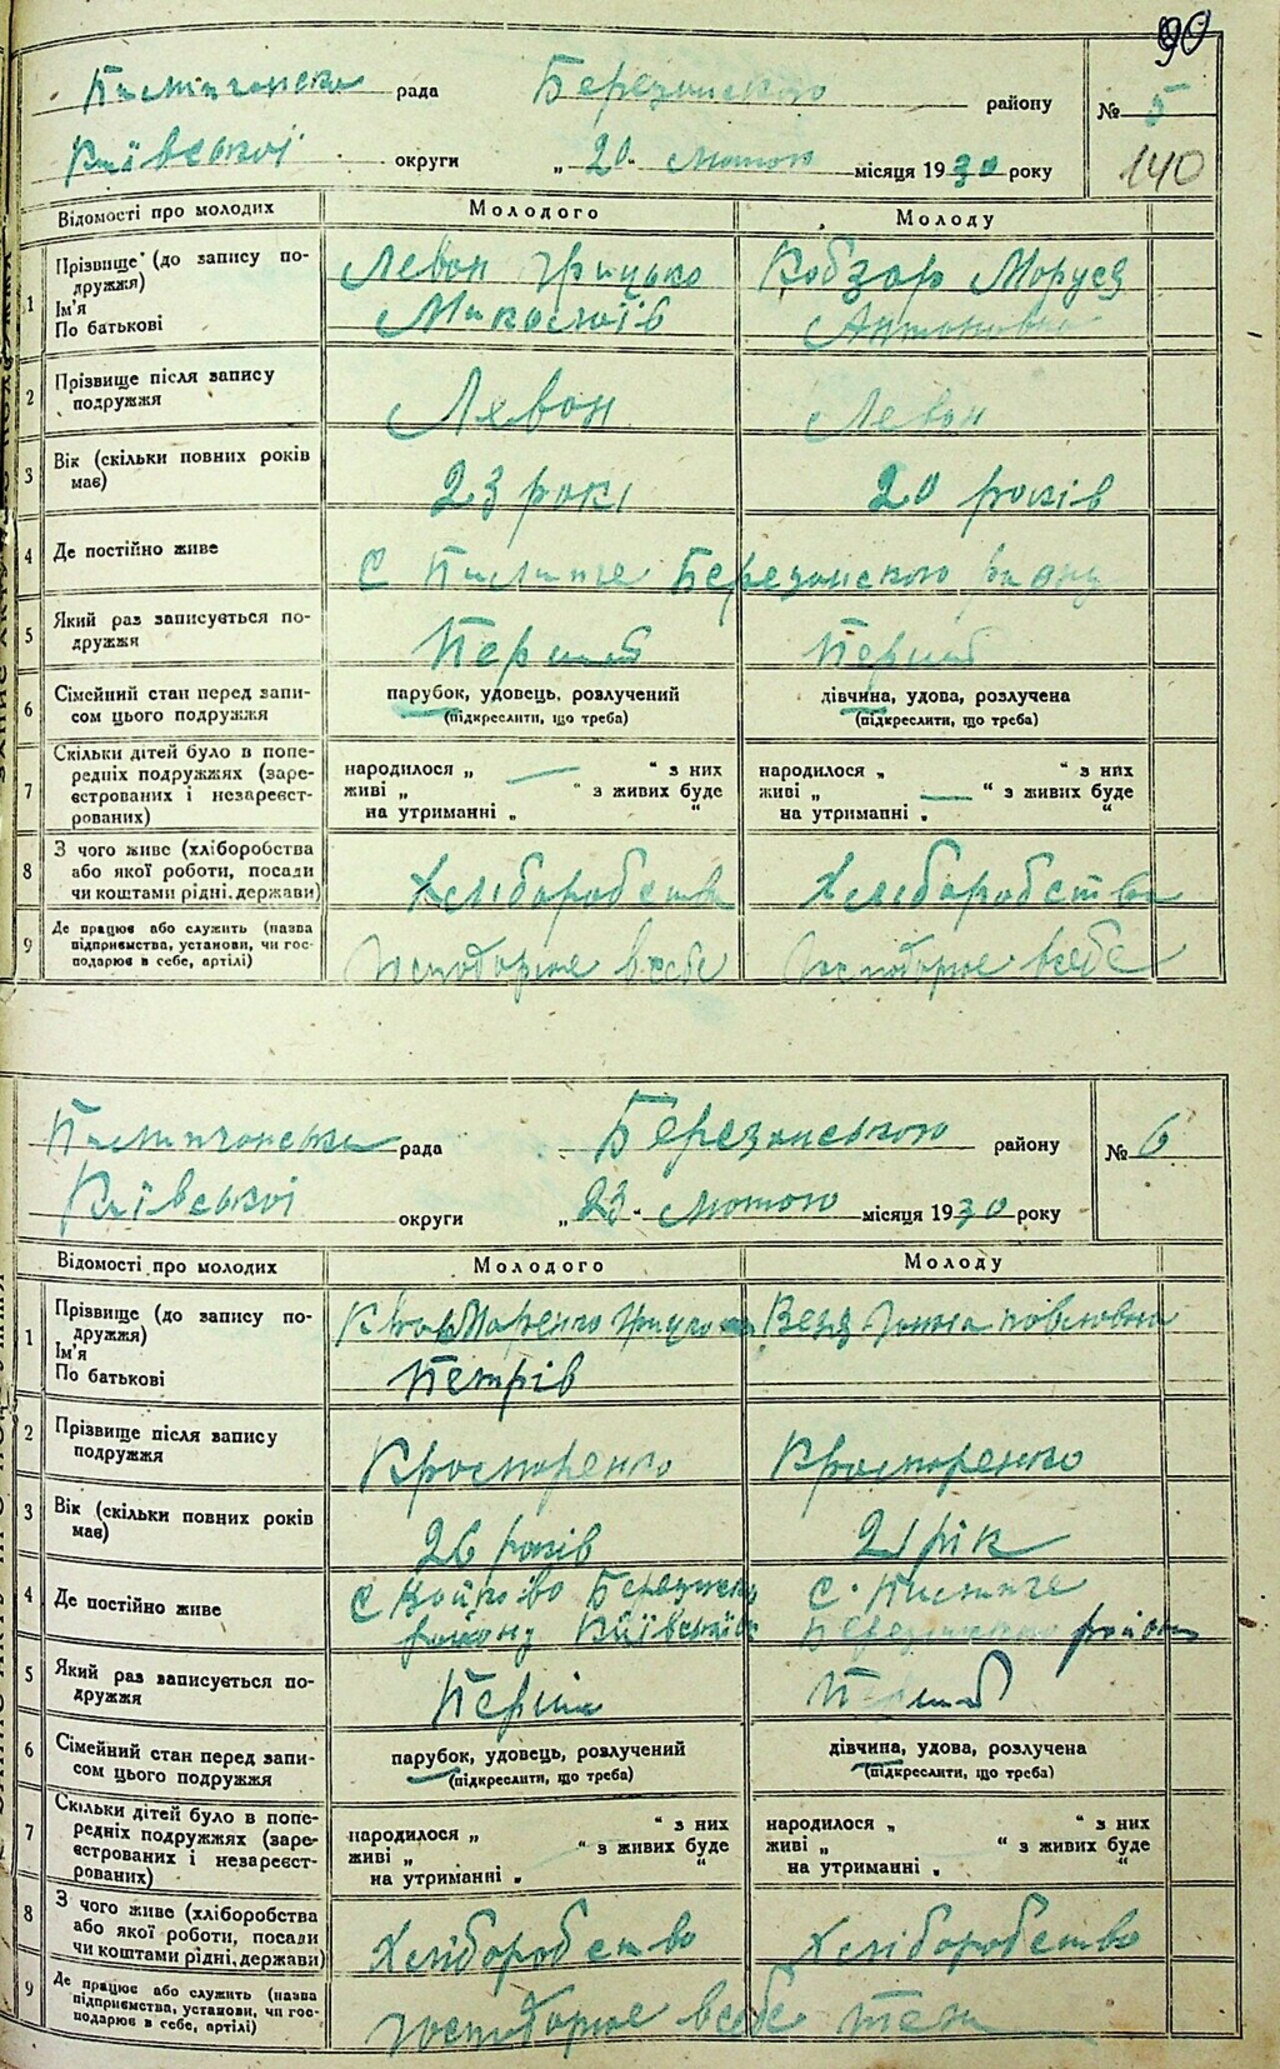 90
рада Березанського району № 5
Київської округи „ 20 “ Лютого місяця 1930 року 140
Відомості про молодих Молодого Молоду
1 Прізвище (до запису по-
дружжя)
Ім'я
По батькові
Левон Грицько
Миколаїв
Кобзар Моруся
Антоновна
2 Прізвище після запису
подружжя
Левон Левон
3 Вік (скільки повних років
має)
23 рокі 20 років
4 Де постійно живе
С Березанского
5 Який раз записується по-
дружжя
Перший Перший
6 Сімейний стан перед запи-
сом цього подружжя
парубок, удовець, розлучений
(підкреслити, що треба)
дівчина, удова, розлучена
(підкреслити, що треба)
7 Скільки дітей було в попе-
редніх подружжях (заре-
єстрованих і незареєст-
рованих)
народилося „ — “ з них
живі „ “ з живих буде
на утриманні „ “
народилося „ “ з них
живі „ — “ з живих буде
на утриманні „ “
8 З чого живе (хліборобства
або якої роботи, посади
чи коштами рідні, держави)
Хліборобства Хліборобства
9 Де працює або служить (назва
підприємства, установи, чи гос-
подарює в себе, артілі)
Господарює в себе Господарює в себе
рада Березанського району № 6
Київської округи „ 23 “ Лютого місяця 1930 року
Відомості про молодих Молодого Молоду
1 Прізвище (до запису по-
дружжя)
Ім'я
По батькові
Петрів
Павловна
2 Прізвище після запису
подружжя
3 Вік (скільки повних років
має)
26 років 21 рік
4 Де постійно живе
С Войково
С.
5 Який раз записується по-
дружжя
Перший
6 Сімейний стан перед запи-
сом цього подружжя
парубок, удовець, розлучений
(підкреслити, що треба)
дівчина, удова, розлучена
(підкреслити, що треба)
7 Скільки дітей було в попе-
редніх подружжях (заре-
єстрованих і незареєст-
рованих)
народилося „ “ з них
живі „ “ з живих буде
на утриманні „ “
народилося „ “ з них
живі „ “ з живих буде
на утриманні „ “
8 З чого живе (хліборобства
або якої роботи, посади
чи коштами рідні, держави)
Хліборобство Хліборобство
9 Де працює або служить (назва
підприємства, установи, чи гос-
подарює в себе, артілі)
Господарює в себе теж